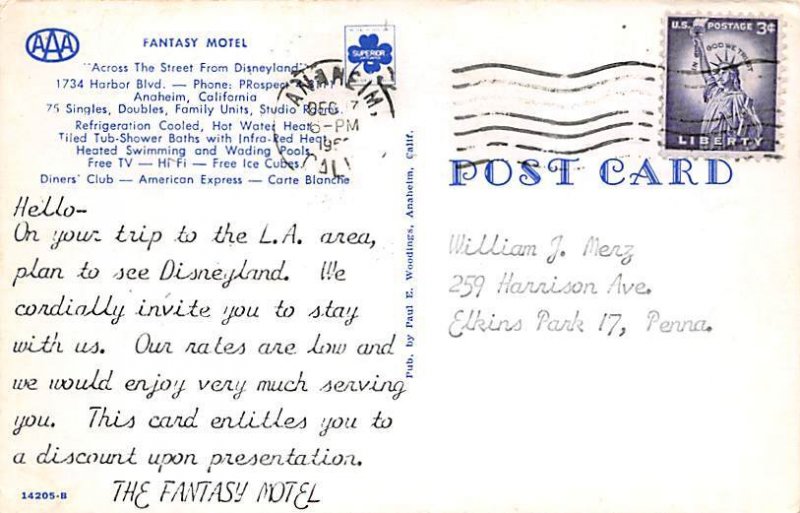 AAA
FANTASY MOTEL
SUPERIOR
"Across The Street From Disneyland"
1734 Harbor Blvd. — Phone: PRospect
Anaheim, California
75 Singles, Doubles, Family Units, Studio Rooms.
Refrigeration Cooled, Hot Water Heat
Tiled Tub-Shower Baths with Infra-Red Heat
Heated Swimming and Wading Pools
Free TV — Hi Fi — Free Ice Cubes
Diners' Club — American Express — Carte Blanche
ANAHEIM,
DEC
6-PM
CALIF
U.S. POSTAGE 3¢
IN GOD WE TRUST
LIBERTY
POST CARD
Hello-
On your trip to the L.A. area,
plan to see Disneyland. We
cordially invite you to stay
with us. Our rates are low and
we would enjoy very much serving
you. This card entitles you to
a discount upon presentation.
THE FANTASY MOTEL
14205-B
Pub. by Paul E. Woodings, Anaheim, Calif.
William J. Merz
259 Harrison Ave.
Elkins Park 17, Penna.